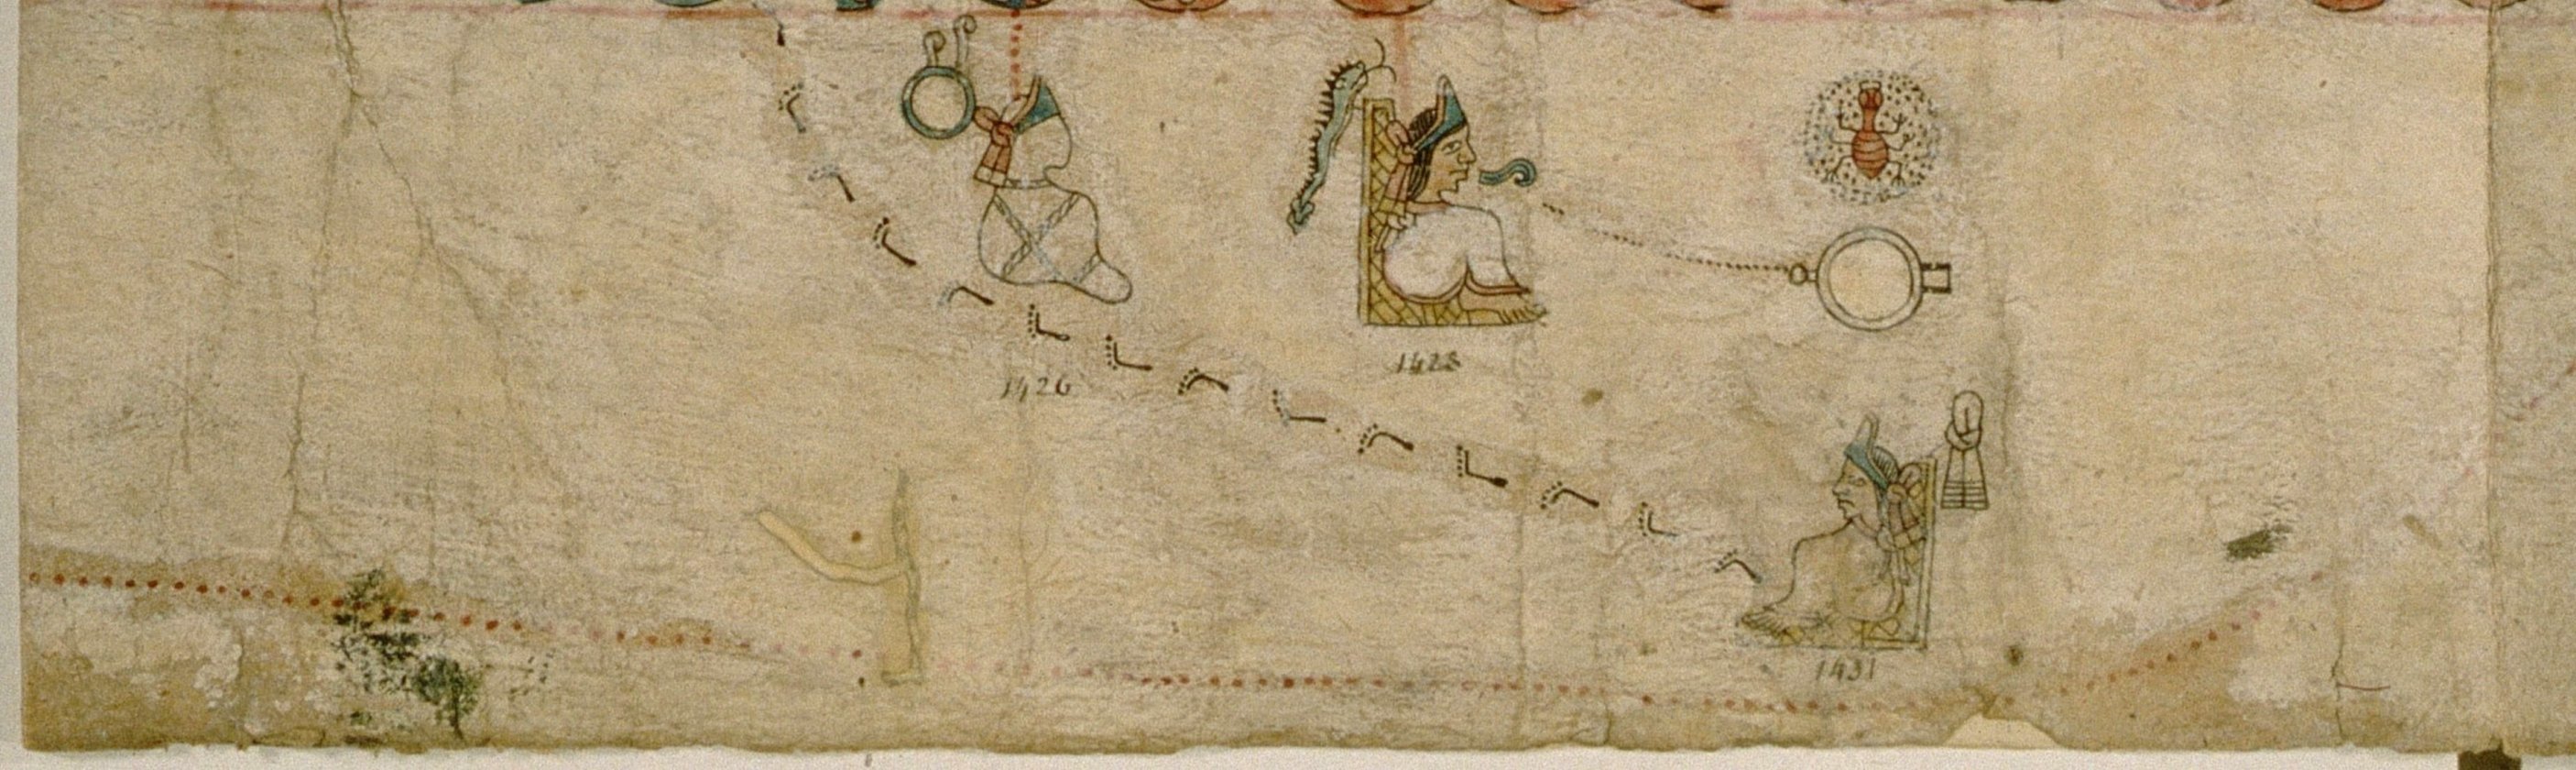 1426
1428
1431